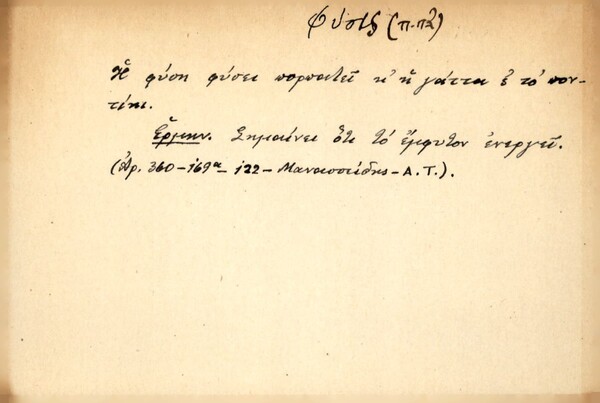 Φύσις (π-πλ)
Ἡ φύση φύσει πορπατεῖ κ' ἡ γάττα ἐ τὸ πον-
τίκι.
Ἑρμην. Σημαίνει ὅτι τὸ ἔμφυτον ἐνεργεῖ.
(Ἀρ. 360-169α-122-Μανασσείδης-Α.Τ.).